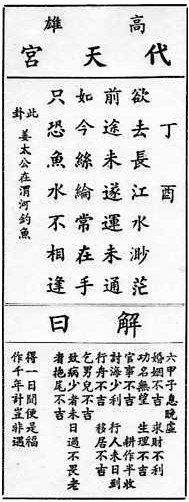 高雄
代天宮
丁酉
欲去長江水渺茫
前途未遂運未通
如今絲綸常在手
只恐魚水不相逢
此卦 姜太公在渭河釣魚
解曰
六甲子息晚虛
婚姻不吉 求財不利
功名無望 生理不吉
官事不吉 耕作半收
討海少利 行人未日到
行舟不吉 移居不吉
乞男兒不吉
致病少者未日過不畏老
者拖尾不吉
得一日閒便是福
作千年計豈非遇